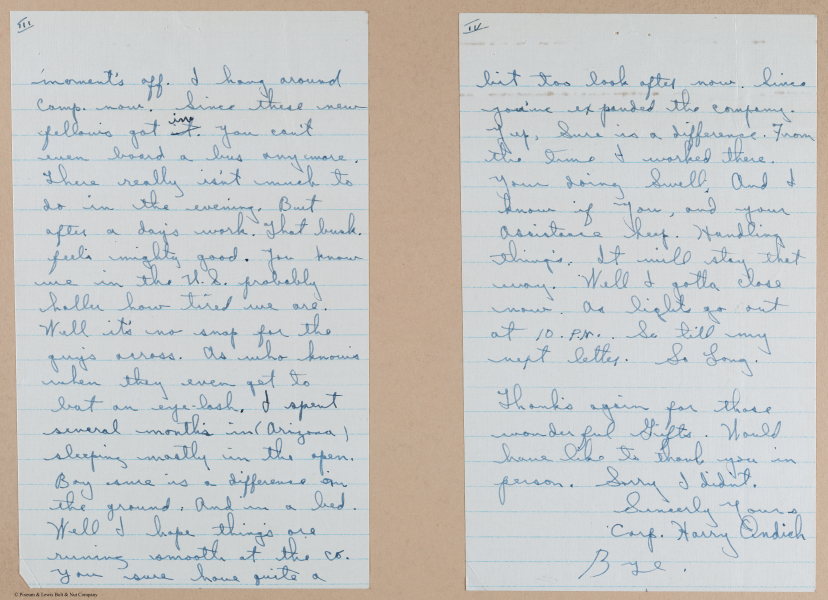 III
moment's off. I hang around
camp. now. Since these new
fellows got in. You can't
even board a bus anymore.
There really isn't much to
do in the evening. But
after a days work. That bunk.
feels mighty good. You know
we in the U.S. probably
holler how tired we are.
Well it's no snap for the
guys across. As who knows
when they even get to
bat an eye-lash. I spent
several months in (Arizona)
sleeping mostly in the open.
Boy sure is a difference on
the ground. And in a bed.
Well I hope things are
runing smooth at the co.
You sure have quite a
© Pioneer & Lewis Bolt & Nut Company
IV
bit too look after now. Since
you've expanded the company.
Yup, Sure is a difference. From
the time I worked there.
Your doing Swell. And I
know if You, and your
Assistance keep. Handling
things. It will stay that
way. Well I gotta close
now. As lights go out
at 10. P.M. So till my
next letter. So Long.
Thanks again for those
wonderful Gifts. Would
have like to thank you in
person. Sorry I didn't.
Sincerly Yours
Corp. Harry Andich
Bye.